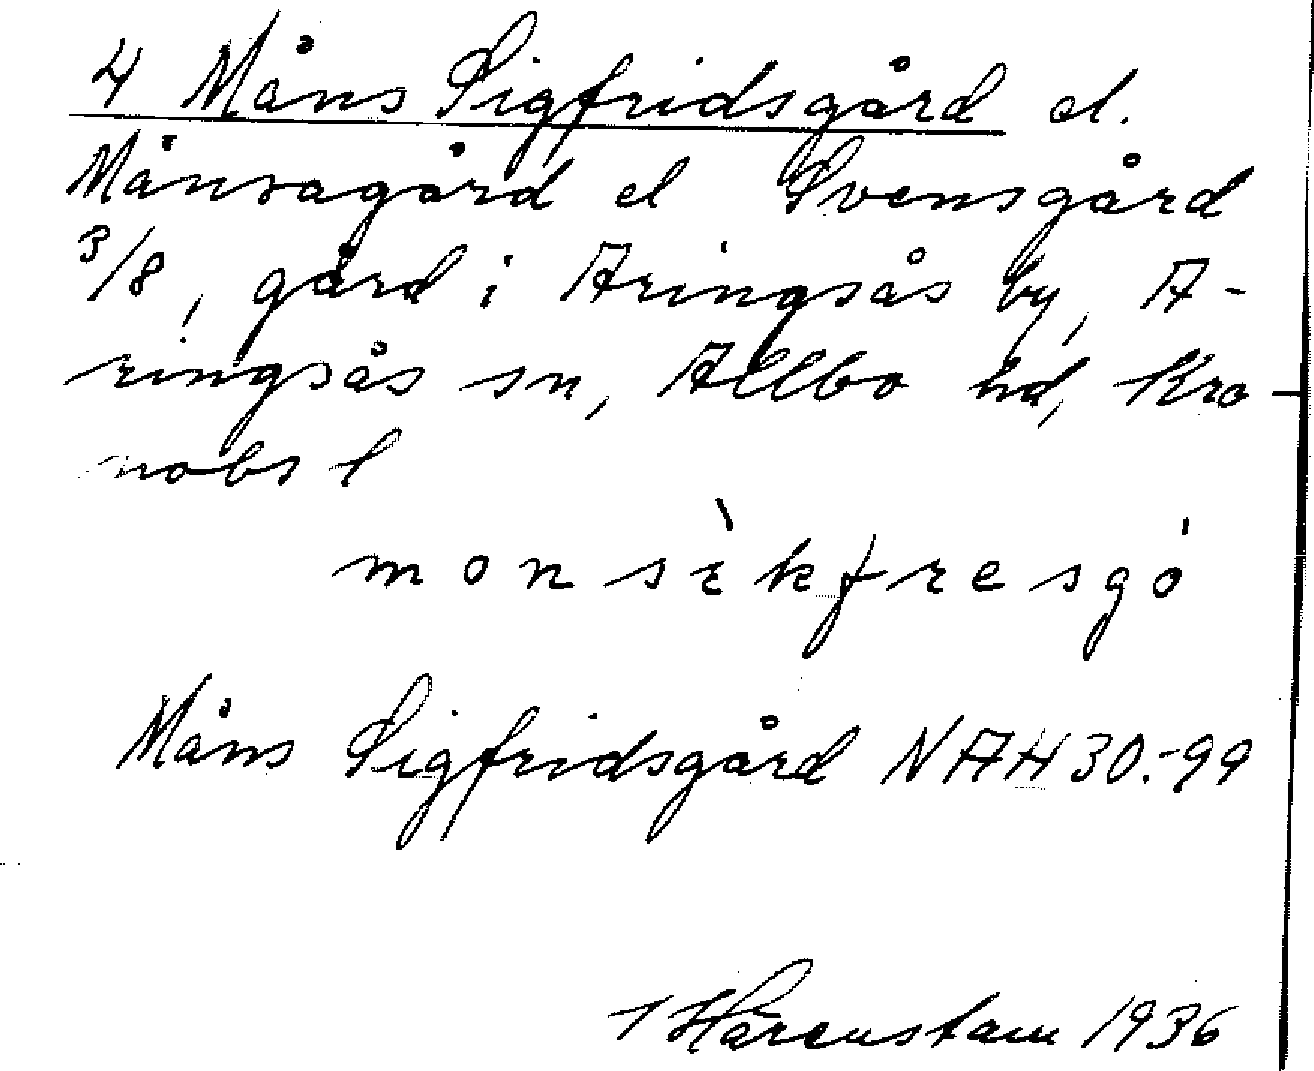 4 Måns Sigfridsgård el.
Månsagård el Svensgård
3/8, gård i Aringsås by, A-
ringsås sn, Allbo hd, Kro-
nobs l
monsìkfresgó
Måns Sigfridsgård NAH 30.-99
Hårenstam 1936